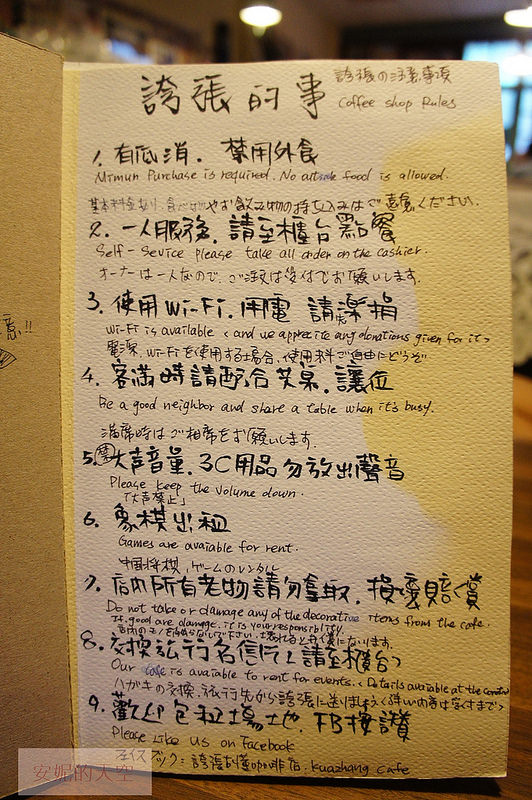 誇張的事 誇張の注意事項
Coffee shop Rules
1. 有低消. 禁用外食
Mimun Purchase is required. No outside food is allowed.
基本料金あり. 食べ物やお飲み物の持ち込みはご遠慮ください.
2. 一人服務. 請至櫃台點餐
Self-Sevice please take all order on the cashier.
オーナーは一人なので、ご注文は後付でお願いします.
3. 使用Wi-Fi. 用電 請樂捐
Wi-Fi is available <and we appretite any donations given for it>
電源. Wi-Fiを使用する場合. 使用料ご自由にどうぞ
4. 客滿時請配合共桌. 讓位
Be a good neighbor and share a table when it's busy.
満席時はご相席をお願いします.
5. 禁大声音量. 3C用品勿放出聲音
Please keep the volume down.
「大声禁止」
6. 象棋出租
Games are avaiable for rent.
中国将棋. ゲームのレンタル
7. 店內所有老物請勿拿取. 損壞賠償
Do not take or damage any of the decorative items from the cafe.
If good are damage. it is your responsiblity.
8. 交換 行名信片<請至櫃台>
Our cafe is avaiable to rent for events. <Details avaiable at the counter
ハガキの交換. 旅行先から誇張に送りましょう
9. 歡迎包租場地. FB按讚
Please Like us on Facebook
フェイスブック: 誇張古懂咖啡店. kuazhang cafe
意!!
安妮的天空